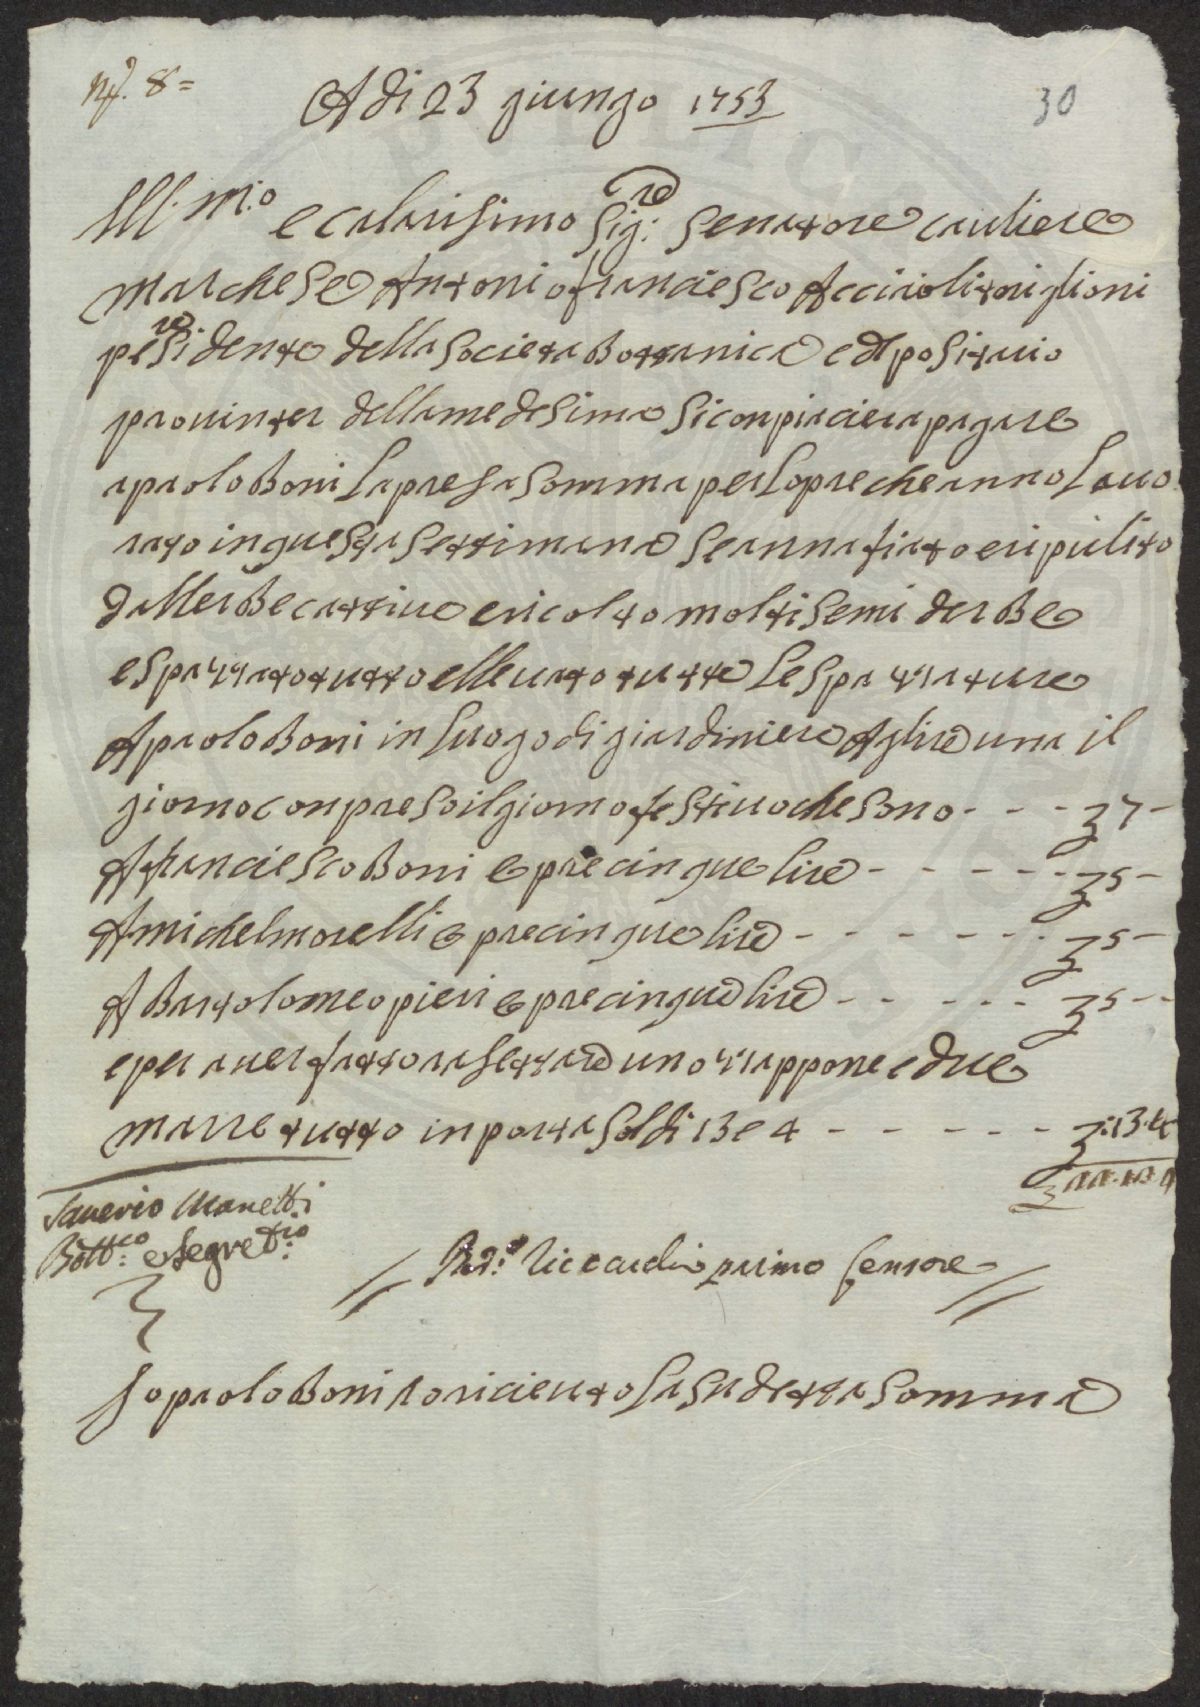 N.º 8=
A di 23 giungo 1753
30
Ill.m:o e calarisimo Sig:re Senatore cauliere
marchese Antonio franciesco Acciaioli toriglioni
presidente della societa Bottanica e depositario
prouinter della medesima si conpiaciera pagare
a paolo Boni la presa somma per lopre che anno lauo
rato in questa settimana se annafiato e ripulito
dallerBe cattiue e ricolto molti semi derBe
e spazzato tutto elleuato tutte le spazzature
A paolo Boni in luogo di giardiniero A lire una il
giorno conpreso il giorno festiuo che sono - - - £ 7 -
A franciesco Boni opre cinque lire - - - - - £ 5 -
A michel morelli opre cinque lire - - - - - - £ 5 -
A Bartolomeo pieri opre cinque lire - - - - - - £ 5 - -
e per auer fatto rasettare uno zappone e due
marre tutto inporta soldi 13 e 4 - - - - - - £ :13.4
£ 22.13.4
Saverio Manetti
Bott:co e Segret:rio
// Riccardi primo Censore //
Io paolo Boni o riceuto la sudetta somma